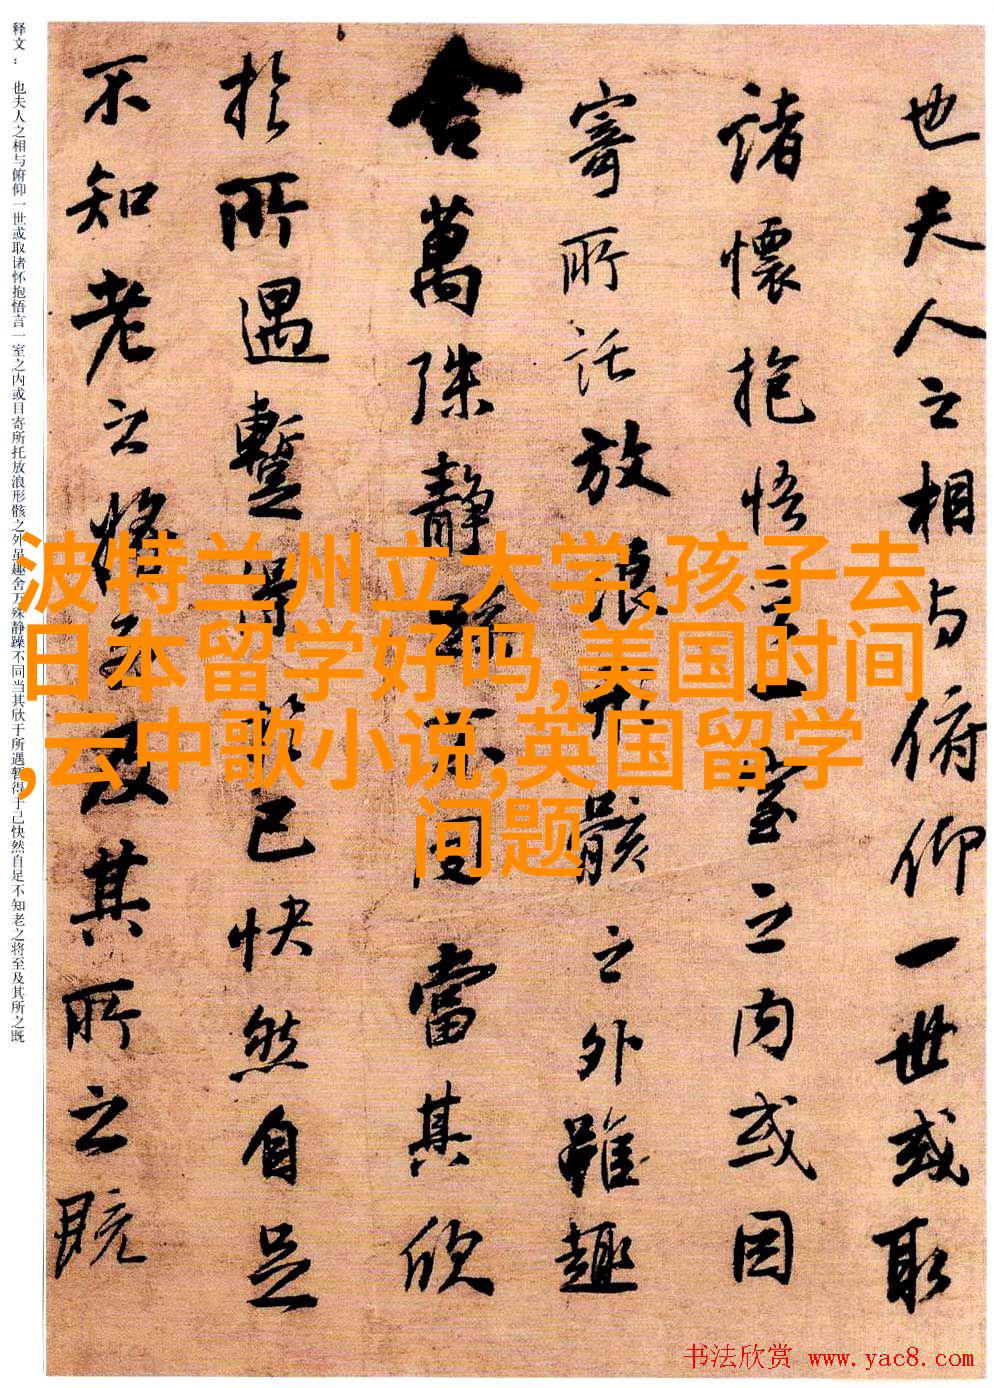 释文：也夫人之相与俯仰一世或取诸怀抱悟言一室之内或目寄所托放浪形骸之外虽趣舍万殊静躁不同当其欣于所遇暂得于己快然自足不知老之将至及其所之既
也夫人之相与俯仰一世或取
諸懷抱悟言一室之内或因
寄所託放浪形骸之外雖趣
舍萬殊静躁不同當其欣
於所遇蹔得於己快然自足
不知老之将至及其所之既
波特兰州立大学,孩子去
日本留学好吗,美国时间
,云中歌小说,英国留学
问题
书法欣赏 www.yac8.com